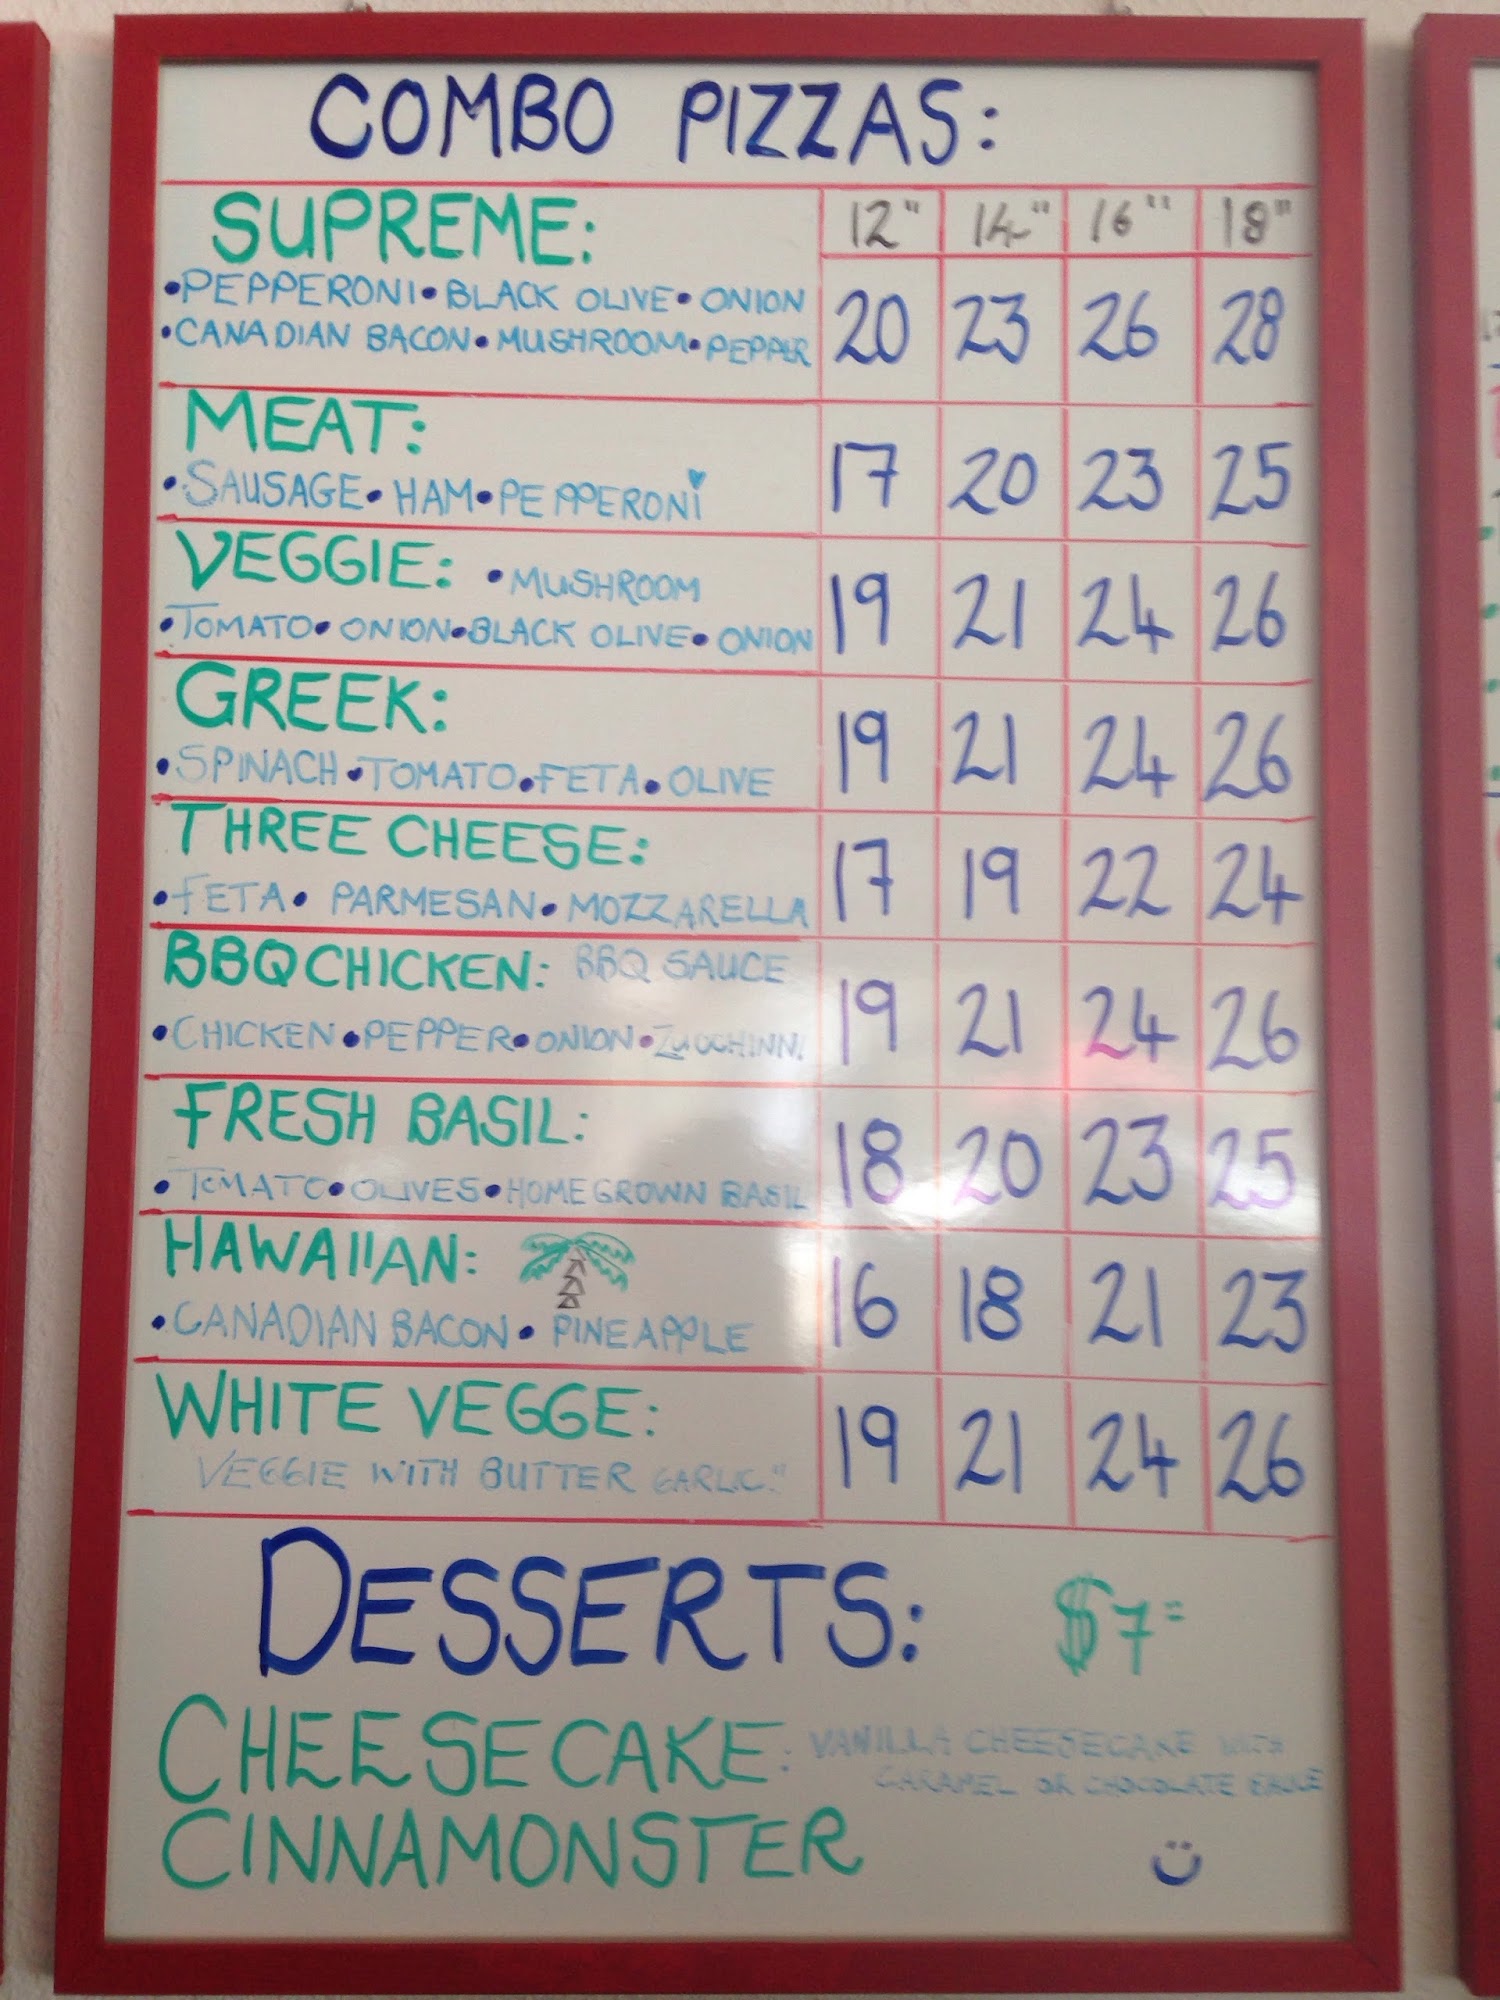 COMBO PIZZAS:
SUPREME: 12" 14" 16" 18"
•PEPPERONI•BLACK OLIVE•ONION
•CANADIAN BACON•MUSHROOM•PEPPER
20 23 26 28
MEAT:
•SAUSAGE•HAM•PEPPERONI
17 20 23 25
VEGGIE: •MUSHROOM
•TOMATO•ONION•BLACK OLIVE•ONION
19 21 24 26
GREEK:
•SPINACH•TOMATO•FETA•OLIVE
19 21 24 26
THREE CHEESE:
•FETA•PARMESAN•MOZZARELLA
17 19 22 24
BBQ CHICKEN: BBQ SAUCE
•CHICKEN•PEPPER•ONION•ZUCCHINNI
19 21 24 26
FRESH BASIL:
•TOMATO•OLIVES•HOMEGROWN BASIL
18 20 23 25
HAWAIIAN:
•CANADIAN BACON•PINEAPPLE
16 18 21 23
WHITE VEGGE:
VEGGIE WITH BUTTER GARLIC."
19 21 24 26
DESSERTS: $7=
CHEESECAKE: VANILLA CHEESECAKE WITH
CARAMEL OR CHOCOLATE SAUCE
CINNAMONSTER